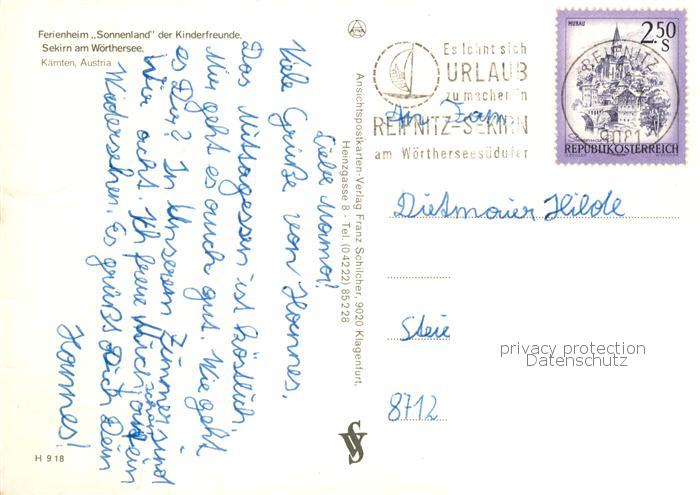 Ferienheim „Sonnenland" der Kinderfreunde,
Sekirn am Wörthersee,
Kärnten, Austria
Liebe Mama!
Viele Grüße von Hannes.
Das Mittagessen ist köstlich.
Mir geht es auch gut. Wie geht
es Dir? In Unserem Zimmer sind
Wir acht. Ich freue Mich schon auf ein
Wiedersehen. Es grüßt Dich Dein
Hannes!
H 918
Ansichtspostkarten-Verlag Franz Schilcher, 9020 Klagenfurt,
Heinzgasse 8 · Tel. (0 42 22) 85 2 28
Es lohnt sich
URLAUB
zu machen in
REIFNITZ-SEKIRN
am Wörtherseesüdufer
MURAU
2.50
S
REIFNITZ
9081
REPUBLIK ÖSTERREICH
An Fam.
Dietmaier Hilde
8712
privacy protection
Datenschutz